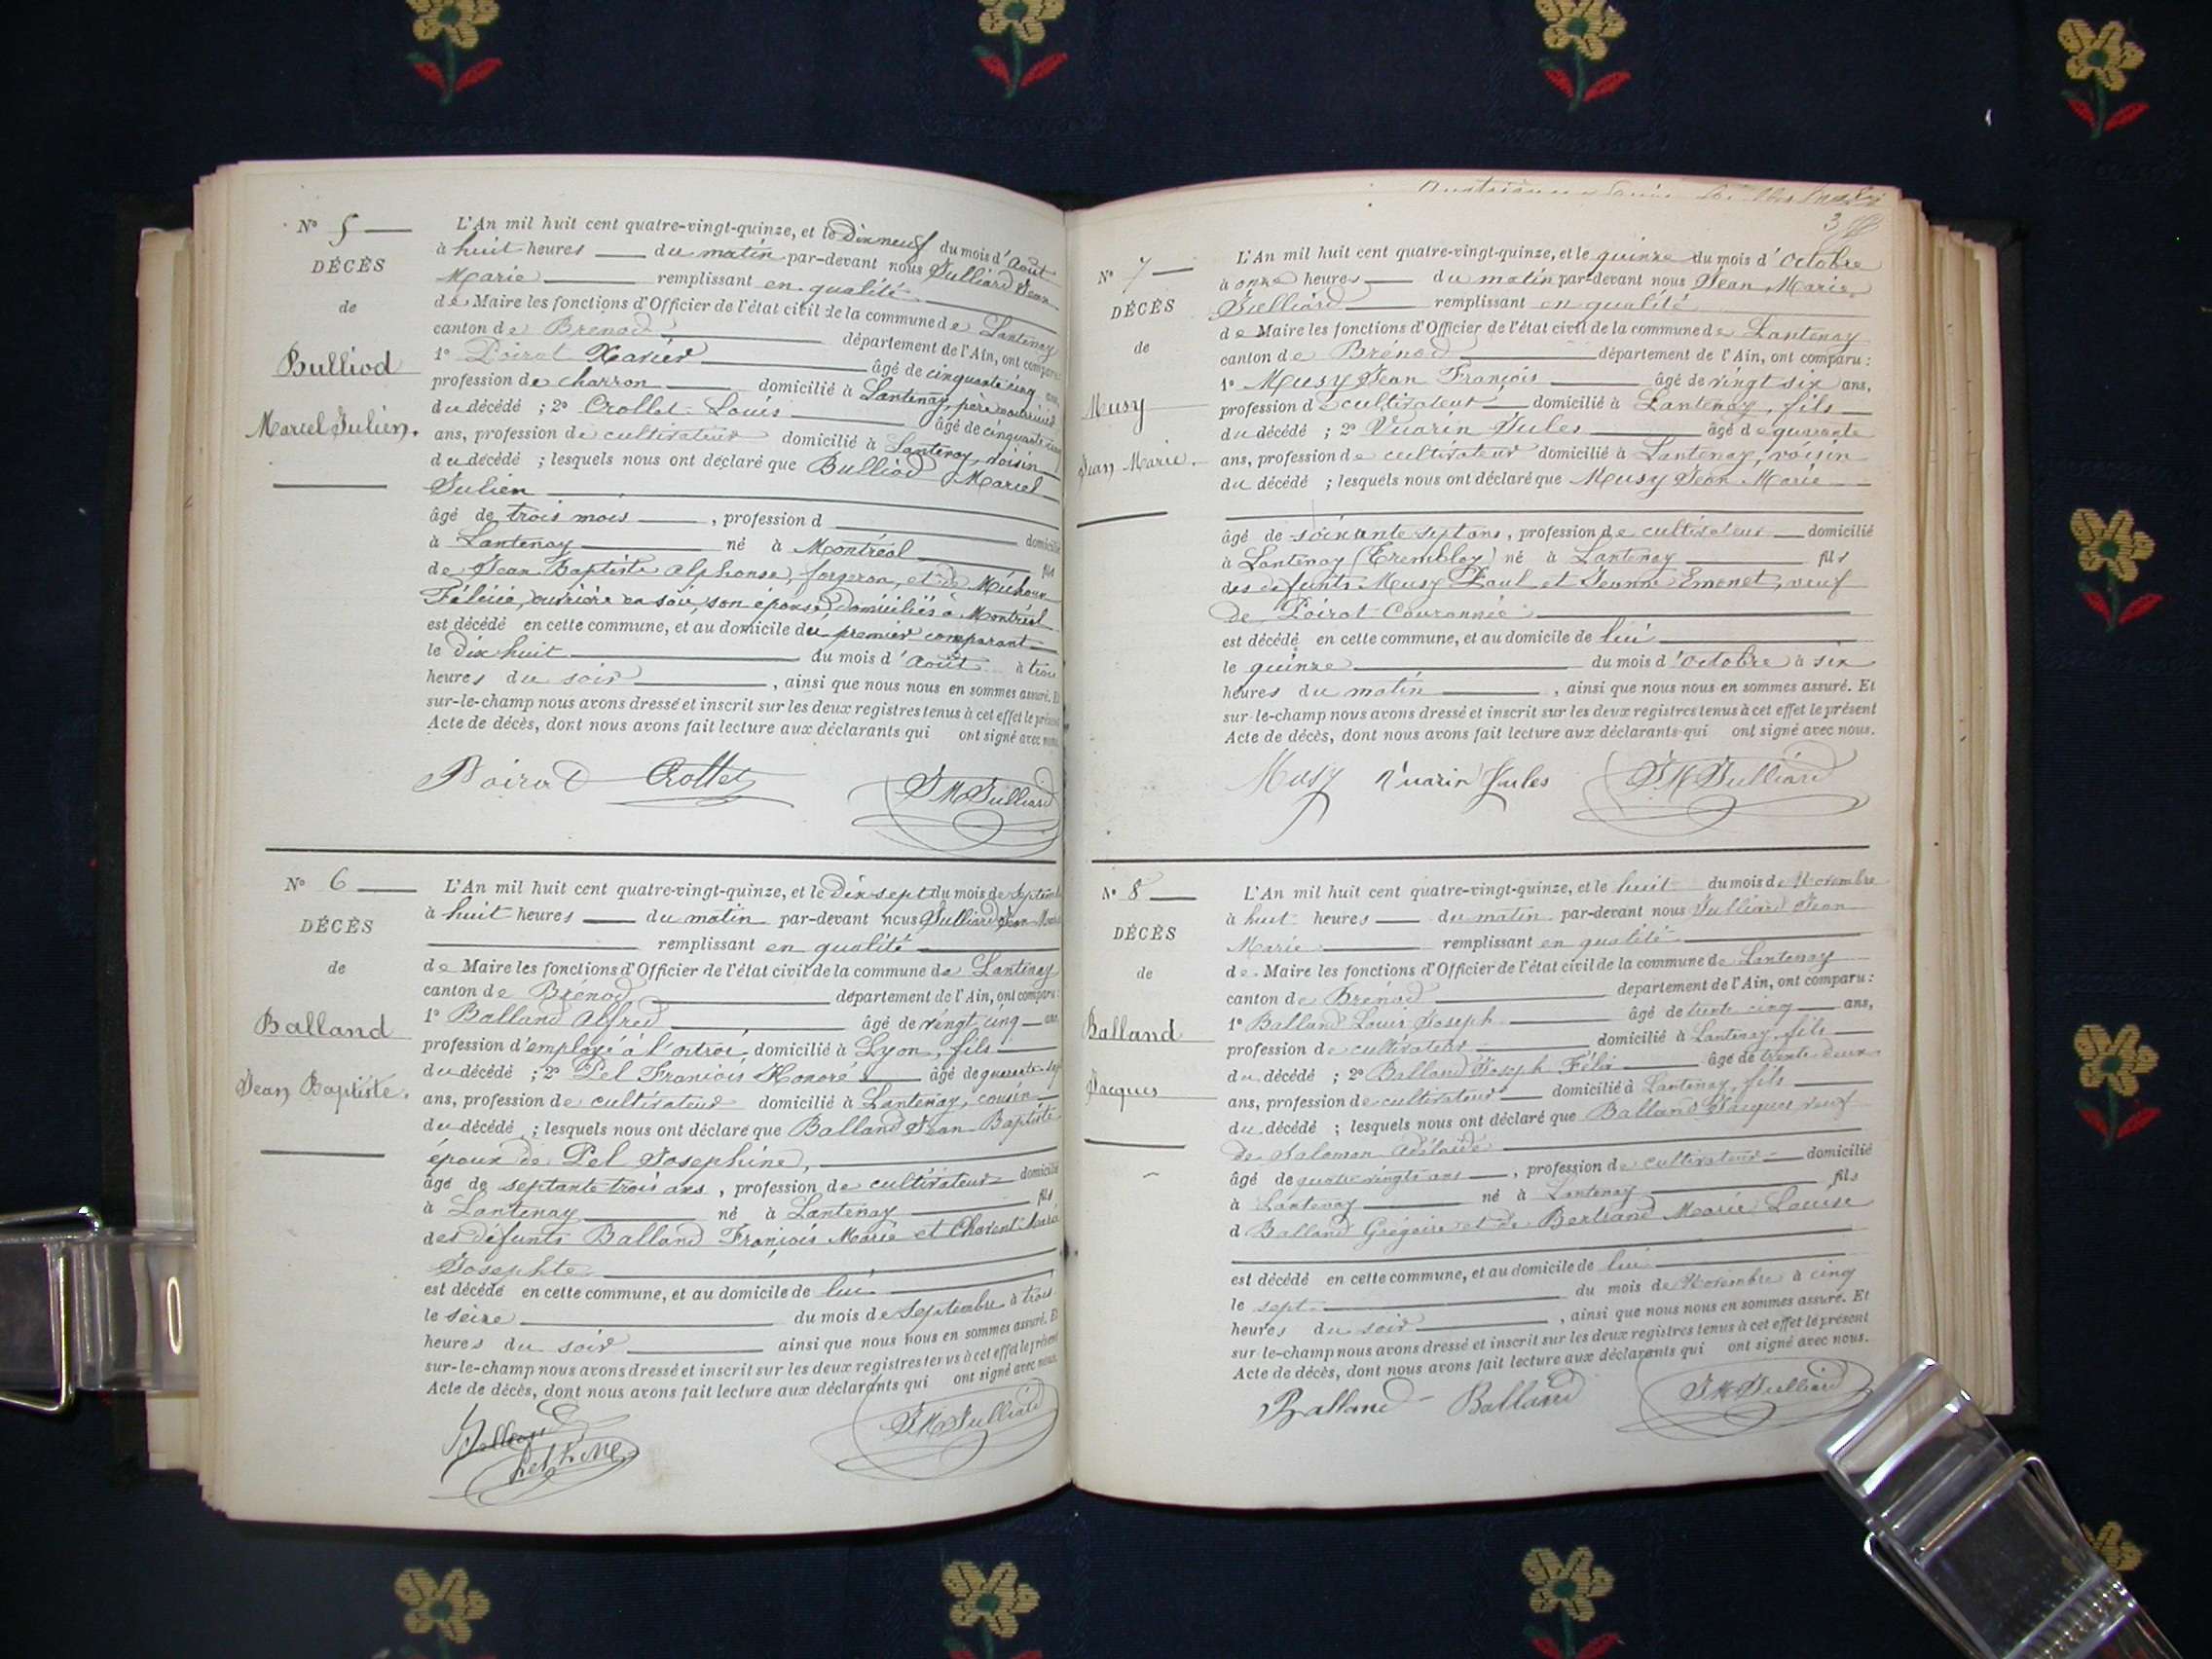 N° 5
DÉCÈS
de
Bulliod
Marcel Julien.
L'An mil huit cent quatre-vingt-quinze, et le Dix neuf du mois d'Août
à huit heures du matin par-devant nous Julliard Jean
Marie remplissant en qualité
de Maire les fonctions d'Officier de l'état civil de la commune de Lantenay
canton de Brénod département de l'Ain, ont comparu :
1° Poirat Xavier âgé de cinquante cinq ans,
profession de charron domicilié à Lantenay, père nourricier
du décédé ; 2° Crollet Louis âgé de cinquante
ans, profession de cultivateur domicilié à Lantenay, voisin
du décédé ; lesquels nous ont déclaré que Bulliod Marcel
Julien
âgé de trois mois, profession d domicilié
à Lantenay né à Montréal fils
de Jean Baptiste Alphonse, forgeron, et de
Félicie, ouvrière en soie, son épouse, domiciliés à Montréal
est décédé en cette commune, et au domicile du premier comparant
le dix huit du mois d'Août à trois
heures du soir, ainsi que nous nous en sommes assuré. Et
sur-le-champ nous avons dressé et inscrit sur les deux registres tenus à cet effet le présent
Acte de décès, dont nous avons fait lecture aux déclarants qui ont signé avec nous.
Poirat Crollet JM Julliard
N° 6
DÉCÈS
de
Balland
Jean Baptiste.
L'An mil huit cent quatre-vingt-quinze, et le Dix sept du mois de Septembre
à huit heures du matin par-devant nous Julliard Jean Marie
remplissant en qualité
de Maire les fonctions d'Officier de l'état civil de la commune de Lantenay
canton de Brénod département de l'Ain, ont comparu :
1° Balland Alfred âgé de vingt cinq ans
profession d'employé à l'octroi, domicilié à Lyon, fils
du décédé ; 2° Pel François Honoré âgé de quarante sept
ans, profession de cultivateur domicilié à Lantenay, cousin
du décédé ; lesquels nous ont déclaré que Balland Jean Baptiste
époux de Pel Josephine,
âgé de septante trois ans, profession de cultivateur domicilié
à Lantenay né à Lantenay fils
des défunts Balland François Marie et Chavent Marie
Josephte
est décédé en cette commune, et au domicile de lui
le seize du mois de Septembre à trois
heures du soir ainsi que nous nous en sommes assuré. Et
sur-le-champ nous avons dressé et inscrit sur les deux registres tenus à cet effet le présent
Acte de décès, dont nous avons fait lecture aux déclarants qui ont signé avec nous.
Balland JM Julliard
3
N° 7
DÉCÈS
de
Musy
Jean Marie.
L'An mil huit cent quatre-vingt-quinze, et le quinze du mois d'Octobre
à onze heures du matin par-devant nous Jean Marie
Julliard remplissant en qualité
de Maire les fonctions d'Officier de l'état civil de la commune de Lantenay
canton de Brénod département de l'Ain, ont comparu :
1° Musy Jean François âgé de vingt six ans,
profession de cultivateur domicilié à Lantenay, fils
du décédé ; 2° Vuarin Jules âgé de quarante
ans, profession de cultivateur domicilié à Lantenay, voisin
du décédé ; lesquels nous ont déclaré que Musy Jean Marie
âgé de soixante sept ans, profession de cultivateur domicilié
à Lantenay (Tremblay) né à Lantenay fils
des défunts Musy Paul et Jeanne Emonet, veuf
de Poirat Couronnée
est décédé en cette commune, et au domicile de lui
le quinze du mois d'Octobre à six
heures du matin, ainsi que nous nous en sommes assuré. Et
sur-le-champ nous avons dressé et inscrit sur les deux registres tenus à cet effet le présent
Acte de décès, dont nous avons fait lecture aux déclarants qui ont signé avec nous.
Musy Vuarin Jules JM Julliard
N° 8
DÉCÈS
de
Balland
Jacques
L'An mil huit cent quatre-vingt-quinze, et le huit du mois de Novembre
à huit heures du matin par-devant nous Julliard Jean
Marie remplissant en qualité
de Maire les fonctions d'Officier de l'état civil de la commune de Lantenay
canton de Brénod département de l'Ain, ont comparu :
1° Balland Louis Joseph âgé de trente cinq ans,
profession de cultivateur domicilié à Lantenay, fils
du décédé ; 2° Balland Joseph Félix âgé de trente deux
ans, profession de cultivateur domicilié à Lantenay, fils
du décédé ; lesquels nous ont déclaré que Balland Jacques veuf
de Salomon Adélaïde
âgé de quatre vingts ans, profession de cultivateur domicilié
à Lantenay né à Lantenay fils
d Balland Grégoire et de Bertrand Marie Louise
est décédé en cette commune, et au domicile de lui
le sept du mois de Novembre à cinq
heures du soir, ainsi que nous nous en sommes assuré. Et
sur-le-champ nous avons dressé et inscrit sur les deux registres tenus à cet effet le présent
Acte de décès, dont nous avons fait lecture aux déclarants qui ont signé avec nous.
Balland Balland JM Julliard